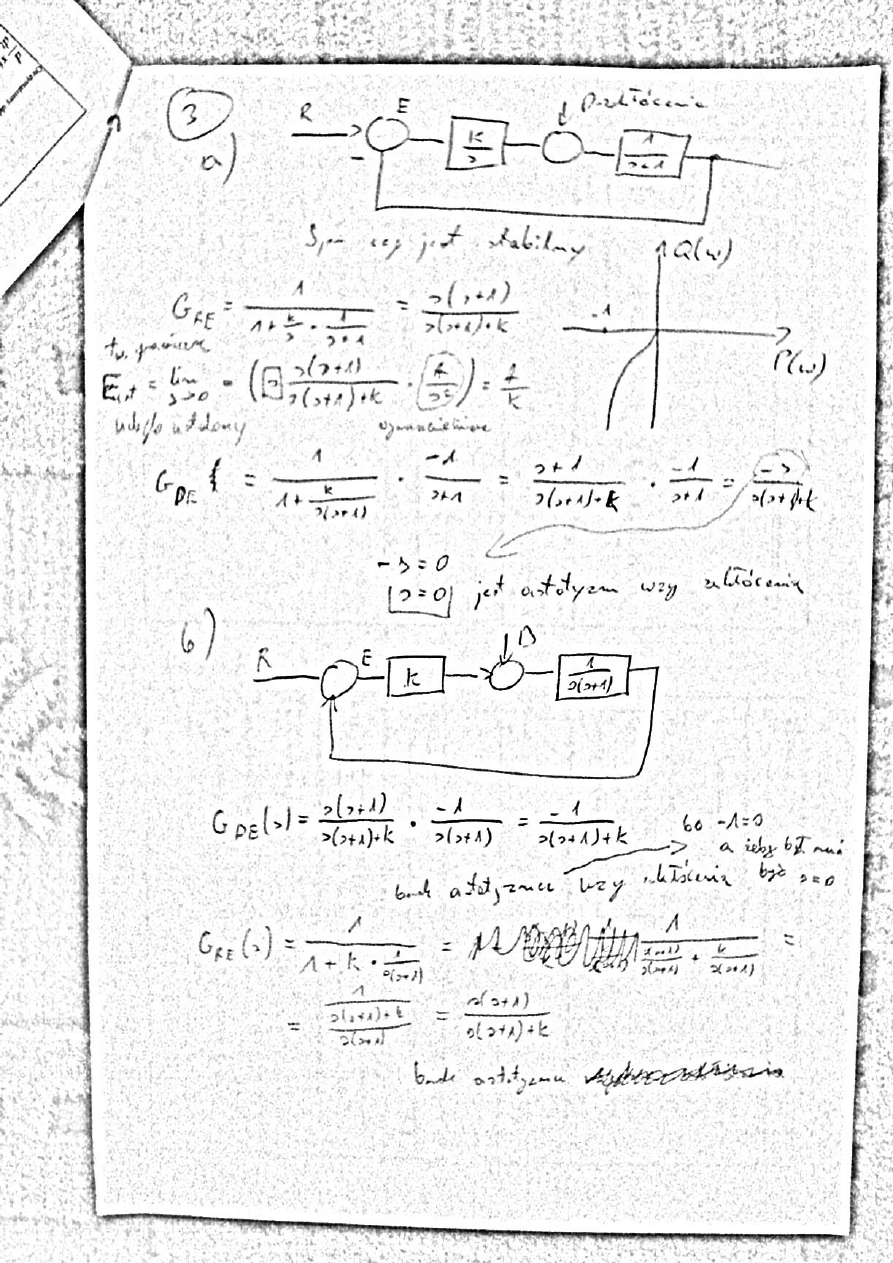 3
a)
R E Dzakłócenie
k/s 1/(s+1)
-
Spr czy jest stabilny
Q(w)
G_RE = 1/(1+k/s · 1/(s+1)) = s(s+1)/(s(s+1)+k)
-1
P(w)
tw. graniczne
E_ust = lim s→0 = (s s(s+1)/(s(s+1)+k) · A/s²) = A/k
uchyb ustalony
G_DE = 1/(1+k/(s(s+1))) · -1/(s+1) = s+1/(s(s+1)+k) · -1/(s+1) = -s/(s(s+1)+k)
-s = 0
s = 0 jest astatyzm wzg zakłócenia
b)
R E D
k 1/(s(s+1))
G_DE(s) = s(s+1)/(s(s+1)+k) · -1/(s(s+1)) = -1/(s(s+1)+k)
bo -1=0
a żeby był musi
być s=0
brak astatyzmu wzg zakłócenia
G_RE(s) = 1/(1+k · 1/(s(s+1))) = 1/(s(s+1)/(s(s+1)) + k/(s(s+1))) =
= 1/((s(s+1)+k)/(s(s+1))) = s(s+1)/(s(s+1)+k)
brak astatyzmu